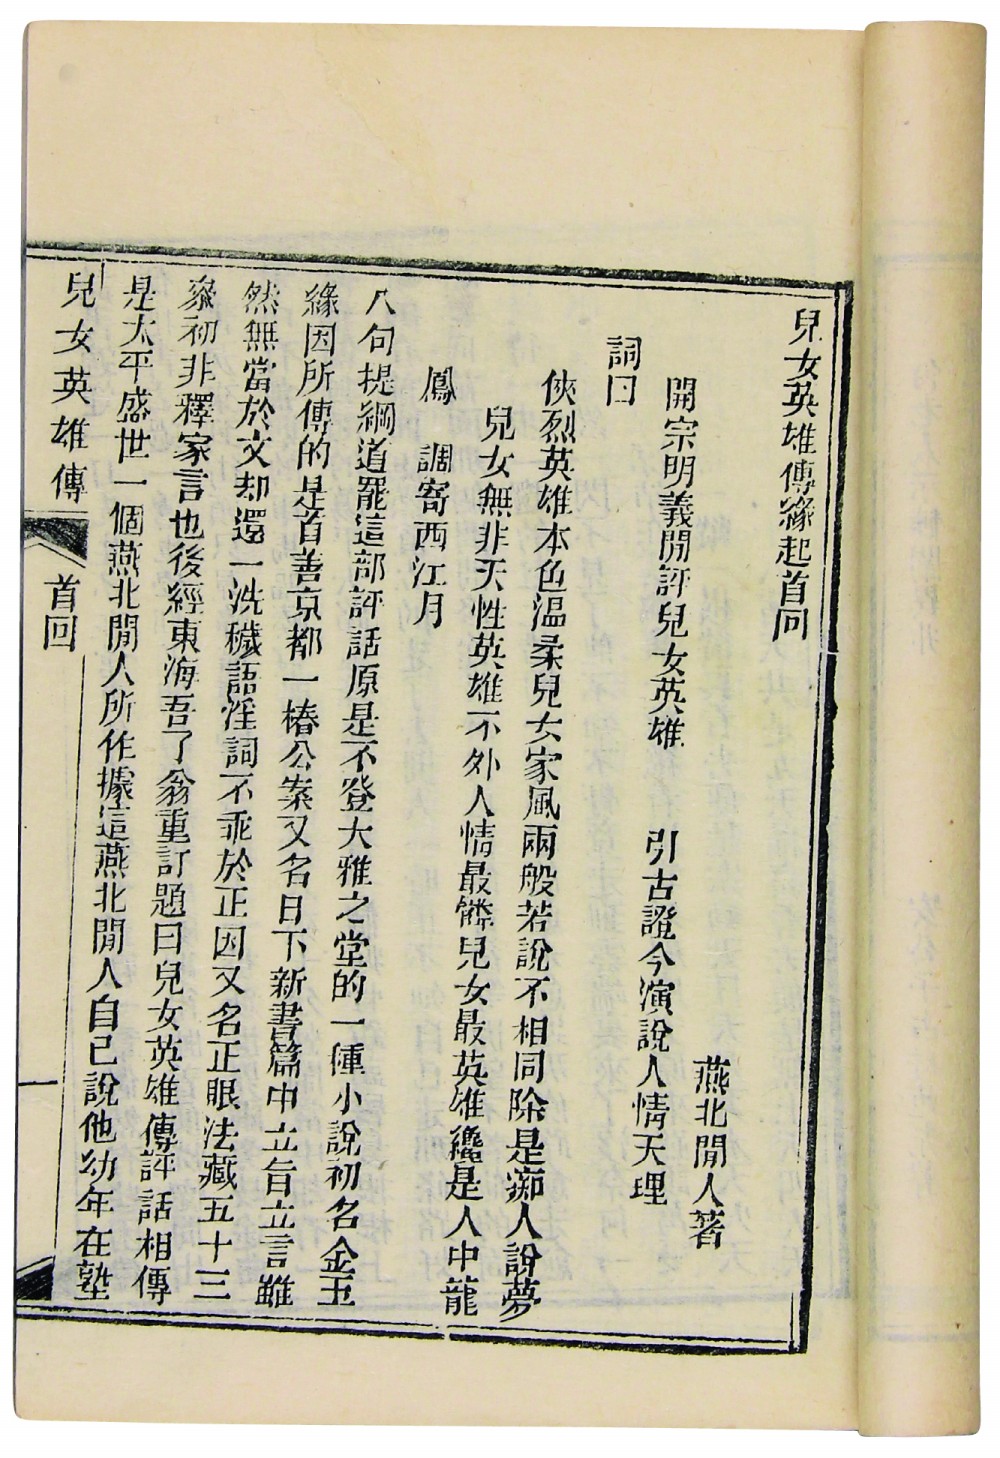 兒女英雄傳緣起首回
燕北閒人著
開宗明義閒評兒女英雄　引古證今演說人情天理
詞曰
俠烈英雄本色温柔兒女家風兩般若說不相同除是痴人說夢
兒女無非天性英雄不外人情最憐兒女最英雄纔是人中龍
鳳　調寄西江月
八句提綱道罷這部評話原是不登大雅之堂的一種小說初名金玉
緣因所傳的是首善京都一樁公案又名日下新書篇中立旨立言雖
然無當於文却還一洗穢語淫詞不乖於正因又名正眼法藏五十三
叅初非釋家言也後經東海吾了翁重訂題曰兒女英雄傳評話相傳
是太平盛世一個燕北閒人所作據這燕北閒人自己說他幼年在塾
兒女英雄傳　首回　一